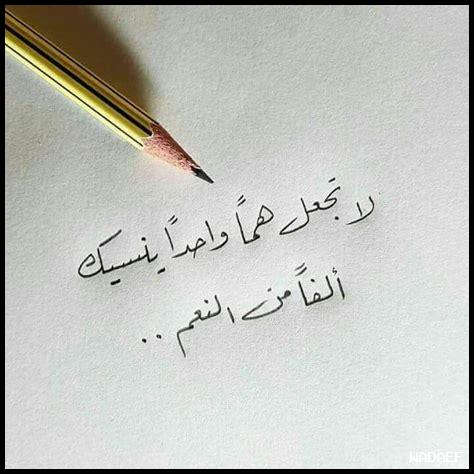 لا تجعل هماً واحداً ينسيك
ألفاً من النعم ..
WADAEF